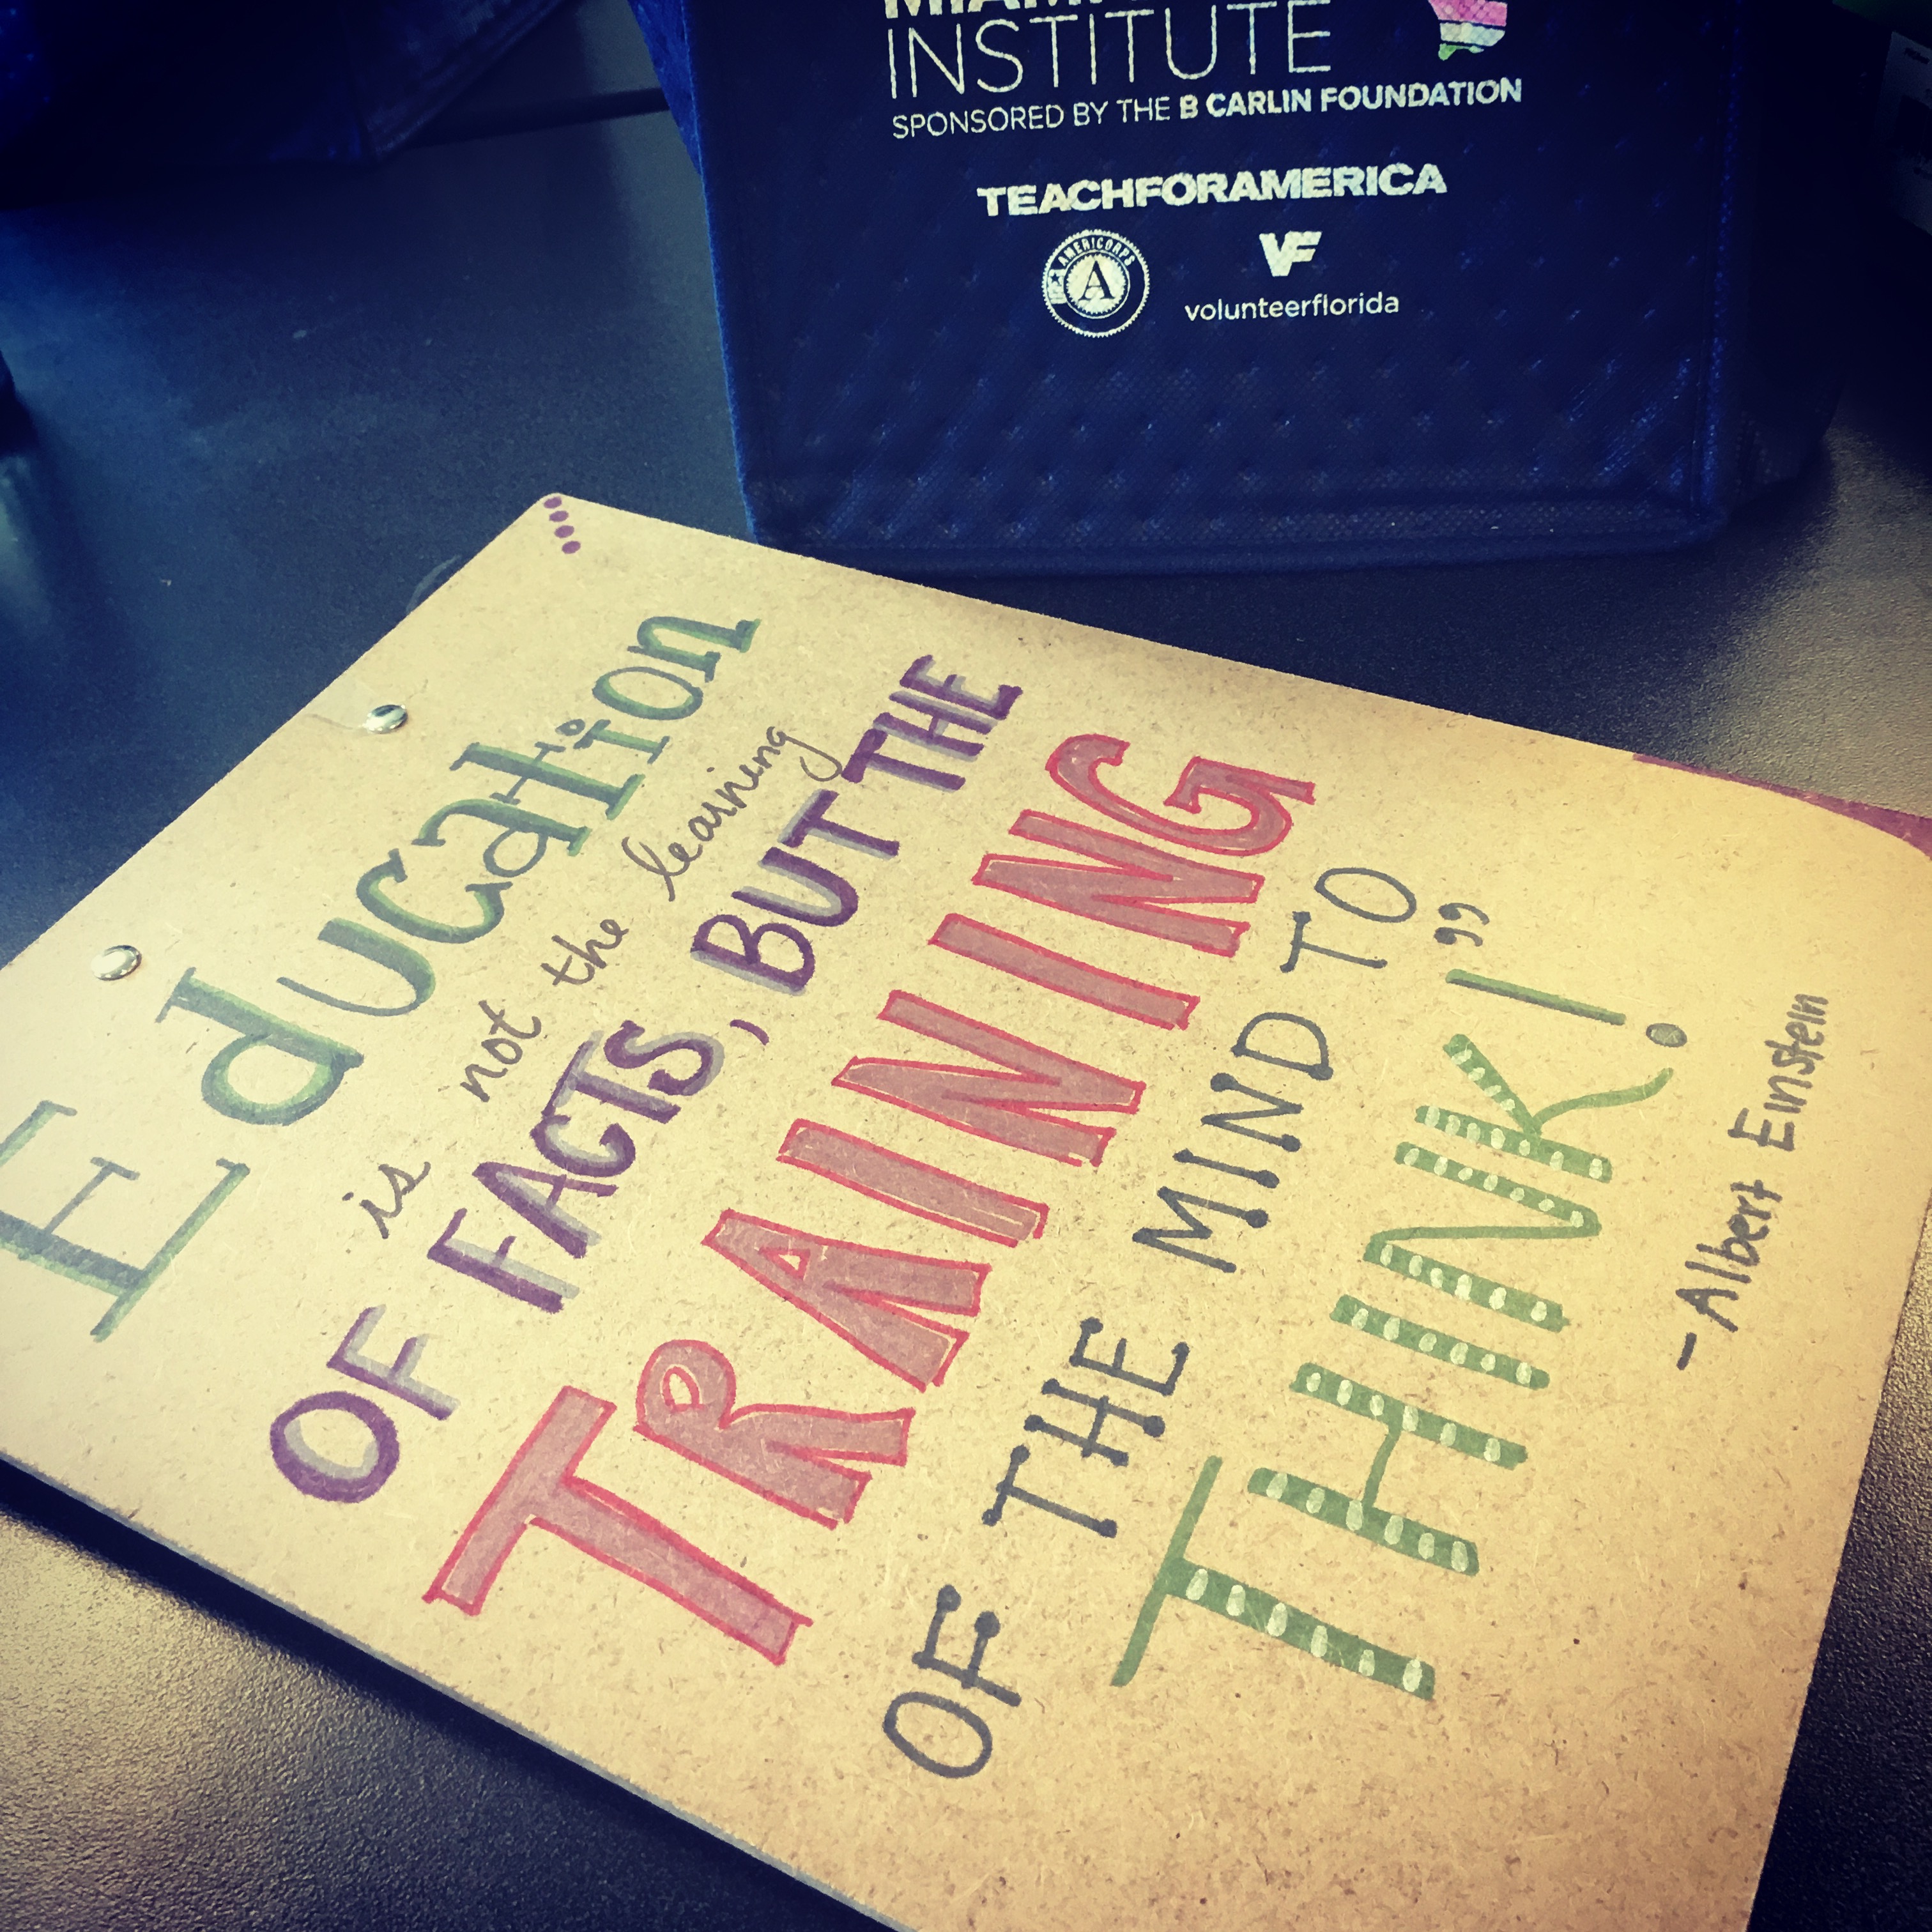 INSTITUTE
SPONSORED BY THE B CARLIN FOUNDATION
TEACHFORAMERICA
AMERICORPS
A
VF
volunteerflorida
Education
is not the learning
OF FACTS, BUT THE
TRAINING
OF THE MIND TO
THINK!”
- Albert Einstein